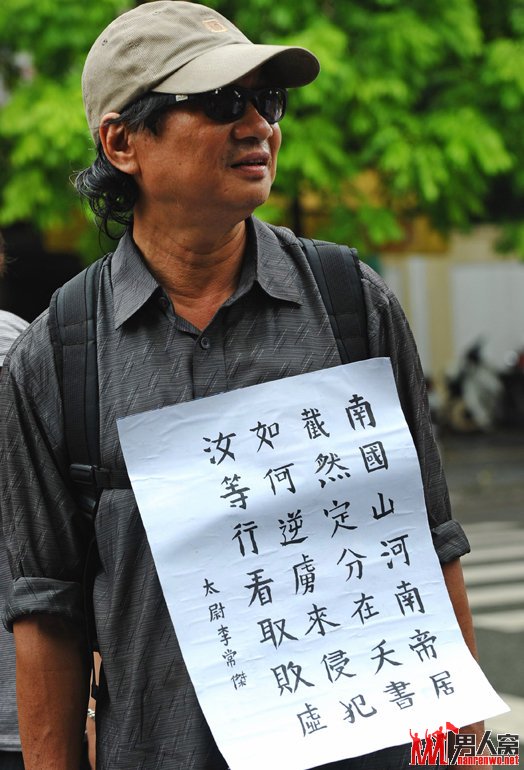 南國山河南帝居
截然定分在天書
如何逆虜來侵犯
汝等行看取敗虛
太尉李常傑
男人窝
nanrenwo.net